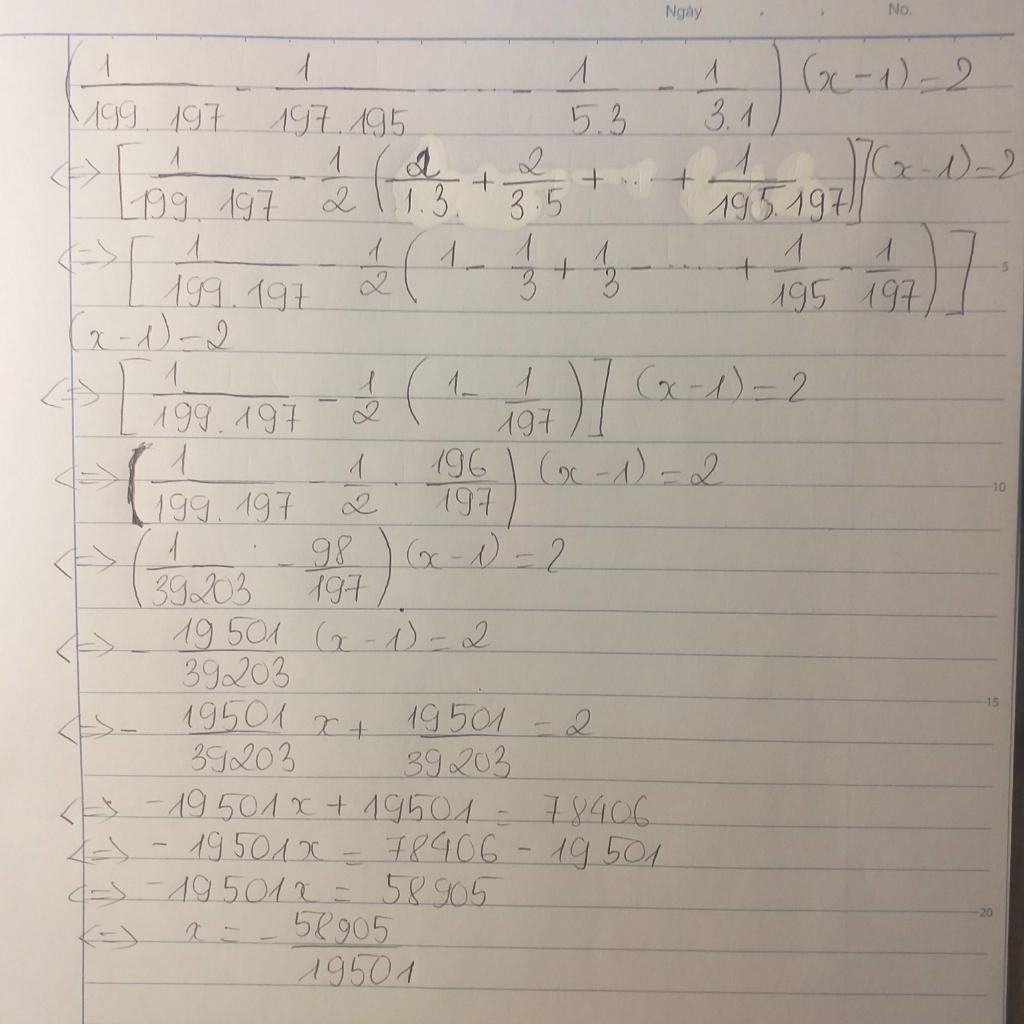 Ngày . . No.
(1/(199.197) - 1/(197.195) - ... - 1/(5.3) - 1/(3.1)) (x-1) = 2
<=> [1/(199.197) - 1/2 (2/(1.3.) + 2/(3.5) + ... + 1/(195.197))] (x-1) = 2
<=> [1/(199.197) - 1/2 (1 - 1/3 + 1/3 - ..... + 1/195 - 1/197)] 5
(x-1) = 2
<=> [1/(199.197) - 1/2 (1 - 1/197)] (x-1) = 2
<=> (1/(199.197) - 1/2 . 196/197) (x-1) = 2 10
<=> (1/39203 - 98/197) (x-1) = 2
<=> - 19501/39203 (x-1) = 2
<=> - 19501/39203 x + 19501/39203 = 2 15
<=> -19501x + 19501 = 78406
<=> - 19501x = 78406 - 19501
<=> -19501x = 58905 20
<=> x = - 58905/19501